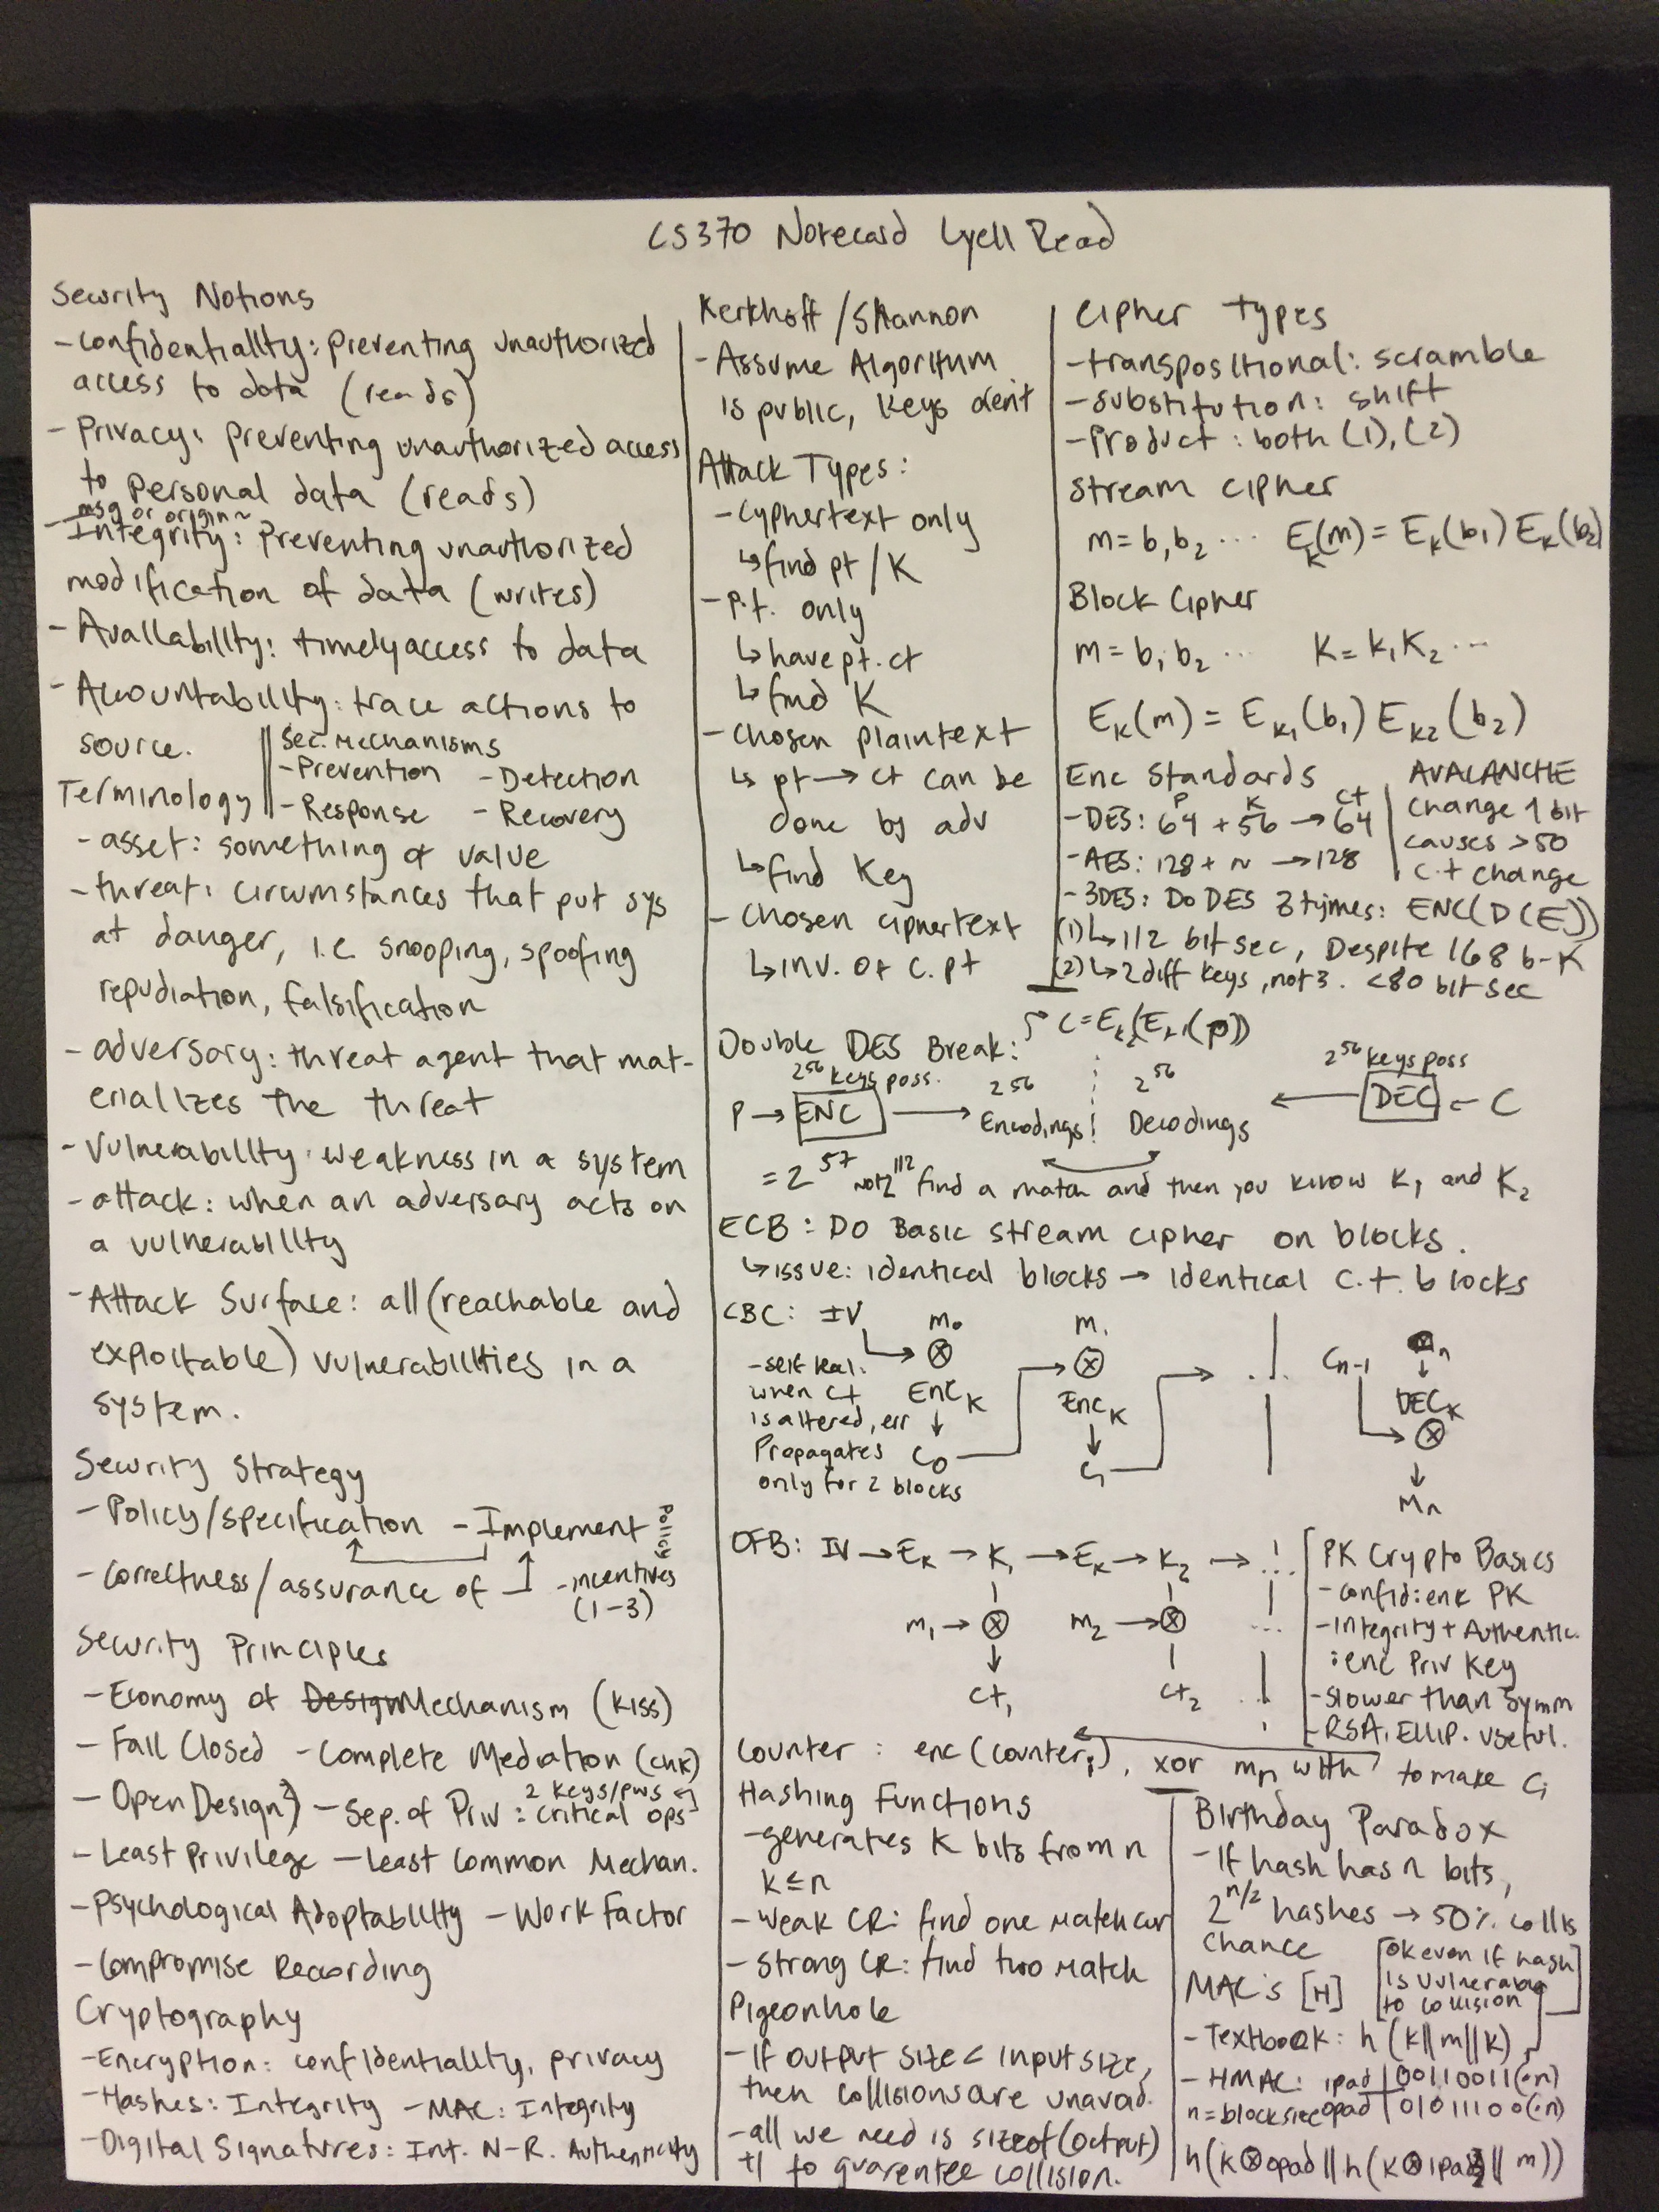 CS370 Notecard Lyell Read
Security Notions
- Confidentiality: preventing unauthorized
access to data (reads)
- Privacy: preventing unauthorized access
to personal data (reads)
msg or origin~
- Integrity: preventing unauthorized
modification of data (writes)
- Availability: timely access to data
- Accountability: trace actions to
source.
Sec. Mechanisms
- Prevention - Detection
- Response - Recovery
Terminology
- asset: something of value
- threat: circumstances that put sys
at danger, i.e snooping, spoofing
repudiation, falsification
- adversary: threat agent that mat-
erializes the threat
- Vulnerability: weakness in a system
- attack: when an adversary acts on
a vulnerability
- Attack Surface: all (reachable and
exploitable) vulnerabilities in a
system.
Security Strategy
- Policy/specification - Implement policy
- Correctness/assurance of - incentives
(1-3)
Security Principles
- Economy of Design Mechanism (KISS)
- Fail Closed - Complete Mediation (chk)
- Open Design - Sep. of Priv: 2 keys/pws
critical ops
- Least Privilege - Least Common Mechan.
- Psychological Adoptability - Work Factor
- Compromise Recording
Cryptography
- Encryption: confidentiality, privacy
- Hashes: Integrity - MAC: Integrity
- Digital Signatures: Int. N-R. Authenticity
Kerkhoff/Shannon
- Assume Algorithm
is public, keys arent
Attack Types:
- Cyphertext only
↳ find pt/K
- P.t. only
↳ have pt. ct
↳ find K
- Chosen plaintext
↳ pt → ct can be
done by adv
↳ find key
- Chosen ciphertext
↳ inv. of c. pt
Cipher Types
- transpositional: scramble
- substitution: shift
- Product: both (1), (2)
Stream Cipher
m = b₁b₂ ... E_K(m) = E_K(b₁) E_K(b₂)
Block Cipher
m = b₁b₂ ... K = k₁K₂ ...
E_K(m) = E_K1(b₁) E_K2(b₂)
Enc Standards
P K ct
- DES: 64 + 56 → 64
- AES: 128 + ~ → 128
AVALANCHE
change 1 bit
causes >50
c.t change
- 3DES: Do DES 3 tymes: ENC(D(E))
(1) ↳ 112 bit sec, Despite 168 b-K
(2) ↳ 2 diff keys, not 3. <80 bit sec
Double DES Break: C = E_k2(E_k1(p))
2⁵⁶ keys poss. 2⁵⁶ 2⁵⁶ 2⁵⁶ keys poss
P → ENC → Encodings Decodings ← DEC ← C
= 2⁵⁷ not 2¹¹² find a match and then you know K₁ and K₂
ECB: Do Basic stream cipher on blocks.
↳ issue: identical blocks → identical c.t. blocks
CBC: IV m₀ m₁ Cn-1 mn
- self heal.
when ct
is altered, err
Propagates
only for 2 blocks
⊗ ⊗
ENC_K ENC_K DEC_K
⊗
C₀ C₁
Mn
OFB: IV → E_K → K₁ → E_K → K₂ → ...
m₁ → ⊗ m₂ → ⊗ ...
ct₁ ct₂ ...
PK Crypto Basics
- confid: enk PK
- integrity + Authentic.
: enc Priv Key
- slower than symm
- RSA, Ellip. useful.
Counter: enc(counterᵢ), xor mn with to make Cᵢ
Hashing Functions
- generates K bits from n
k ≤ n
- Weak CR: find one match
- Strong CR: find two match
Pigeonhole
- If output size < input size,
then collisions are unavad.
- all we need is sizeof(output)
+1 to guarentee collision.
Birthday Paradox
- If hash has n bits,
2^n/2 hashes → 50% collis
chance
MAC's [H]
[OK even if hash
is vulnerable
to collision]
- Textbook: h(k||m||k)
- HMAC: ipad 00110011(·n)
n = blocksize opad 01011100(·n)
h(k⊗opad || h(k⊗ipad || m))